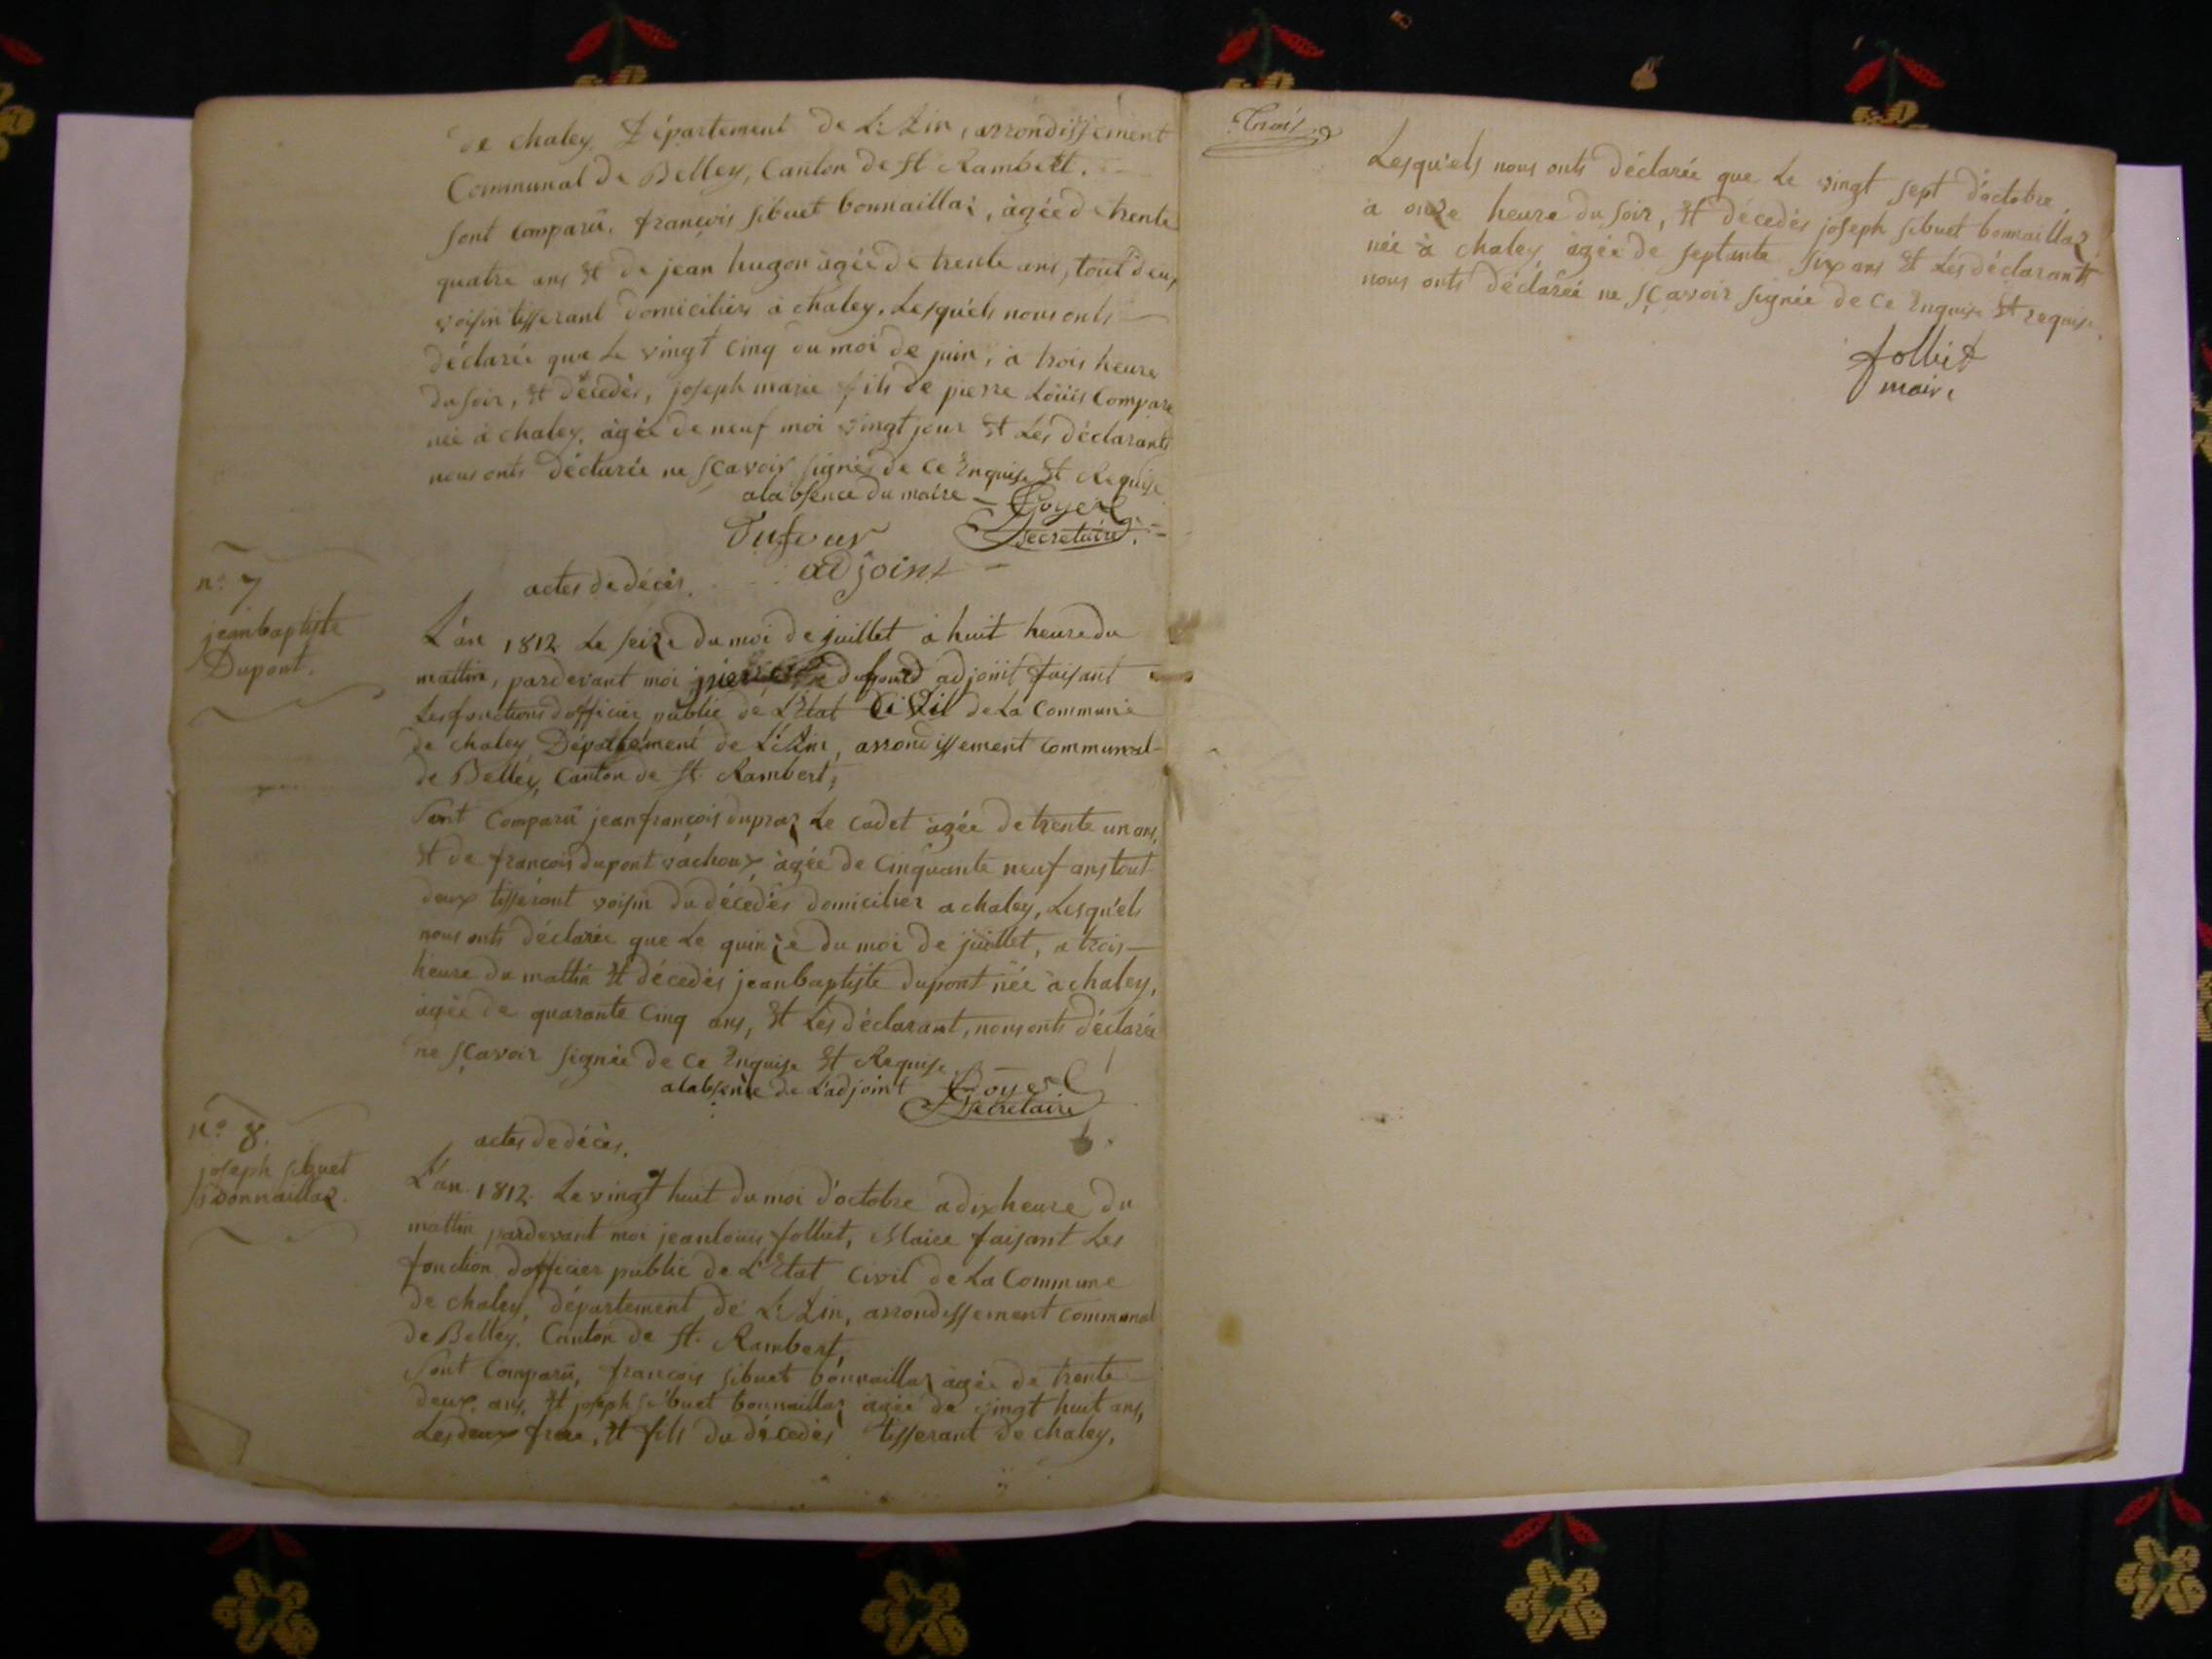 de chaley, Département de L'Ain, arrondissement
Communal de Belley, Canton de St Rambert.
sont comparû, françois sibuet bonnaillaz, àgée de trente
quatre ans et de jean hugon àgée de trente ans, tout deux
voisin tisserant domiciliés à chaley, Lesqu'els nous onts
déclarée que Le vingt cinq du moi de juin, à trois heure
du soir, et décedés, joseph marie fils de pierre Loüis Compare
née à chaley, àgée de neuf moi vingt jour et Les déclarants
nous onts déclarée ne sçavoir signée de ce Enquise et Requise
alabsence du maire
Goyet
Secretaire
Dufour
adjoint
n.o 7
jeanbaptiste
Dupont.
actes de décès.
L'an 1812 Le seize du moi de juillet à huit heure du
mattin, pardevant moi dufour adjoint faisant
Les fonctions d'officier public de L'Etat Civil de La Commune
de chaley, Département de L'Ain, arrondissement communal
de Belley, Canton de St. Rambert,
Sont Comparû jean françois dupraz Le cadet àgée de trente un ans,
et de françois dupont vachoux, àgée de Cinquante neuf ans tout
deux tisserant voisin du décédés domicilier a chaley, Lesqu'els
nous onts déclarée que Le quinze du moi de juillet, a trois
heure du mattin et décedés jeanbaptiste dupont née à chaley,
àgée de quarante Cinq ans, et Les déclarant, nous onts déclarée
ne sçavoir signée de Ce Enquise et Requise
alabsence de L'adjoint
Goyet
Secretaire
n.o 8.
joseph sibuet
bonnaillaz.
actes de décès.
L'an 1812. Le vingt huit du moi d'octobre a dix heure du
mattin pardevant moi jeanlouis folliet, Maire faisant Les
fonction d'officier public de L'Etat Civil de La Commune
de chaley, département de L'Ain, arrondissement communal
de Belley, Canton de St. Rambert,
Sont Comparû, françois sibuet bonnaillaz àgée de trente
deux ans, et joseph sibuet bonnaillaz àgée de vingt huit ans,
Les deux frere, et fils du décedés tisserant de chaley,
Trois
Lesqu'els nous onts déclarée que Le vingt sept d'octobre
à onze heure du soir, et décedés joseph sibuet bonnaillaz
née à chaley, àgée de septante six ans et Les déclarants
nous onts déclarée ne sçavoir signée de Ce Enquise et requise.
folliet
maire